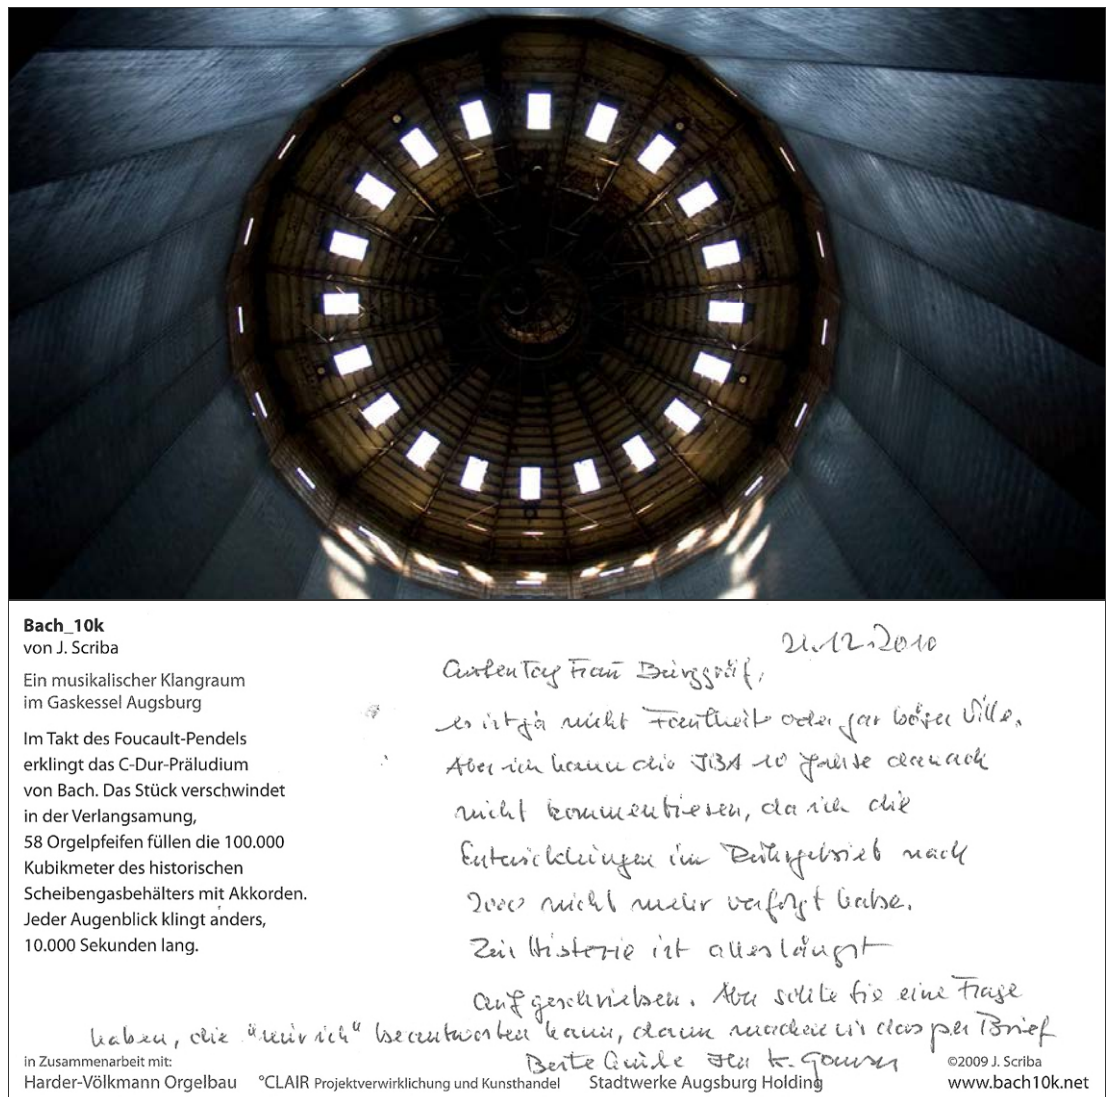 Bach_10k
von J. Scriba
Ein musikalischer Klangraum
im Gaskessel Augsburg
Im Takt des Foucault-Pendels
erklingt das C-Dur-Präludium
von Bach. Das Stück verschwindet
in der Verlangsamung,
58 Orgelpfeifen füllen die 100.000
Kubikmeter des historischen
Scheibengasbehälters mit Akkorden.
Jeder Augenblick klingt anders,
10.000 Sekunden lang.
21.12.2010
Guten Tag Frau Burggräf,
es ist ja nicht Faulheit oder gar böser Wille.
Aber ich kann die IBA 10 Jahre danach
nicht kommentieren, da ich die
Entwicklungen im Ruhrgebiet nach
2000 nicht mehr verfolgt habe.
Zur Historie ist alles längst
aufgeschrieben. Aber sollte Sie eine Frage
haben, die "nur ich" beantworten kann, dann machen wir das per Brief
Beste Grüße Ihr K. Ganser
in Zusammenarbeit mit:
Harder-Völkmann Orgelbau °CLAIR Projektverwirklichung und Kunsthandel Stadtwerke Augsburg Holding
©2009 J. Scriba
www.bach10k.net